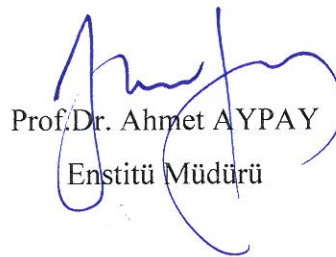 Prof.Dr. Ahmet AYPAY
Enstitü Müdürü